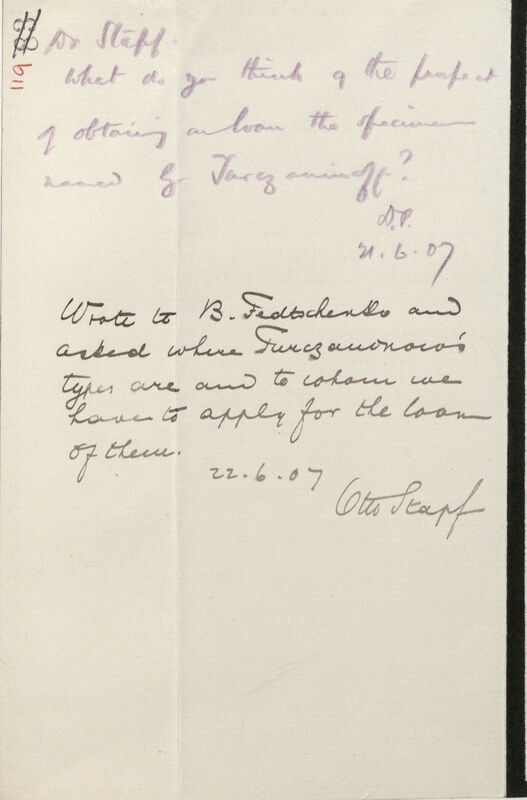 119
Dr Stapf.
What do you think of the prospect
of obtaining on loan the specimen
named by Turczaninoff?
D.P.
21.6.07
Wrote to B. Fedtschenko and
asked where Turczaninow's
types are and to whom we
have to apply for the loan
of them.
22.6.07
Otto Stapf